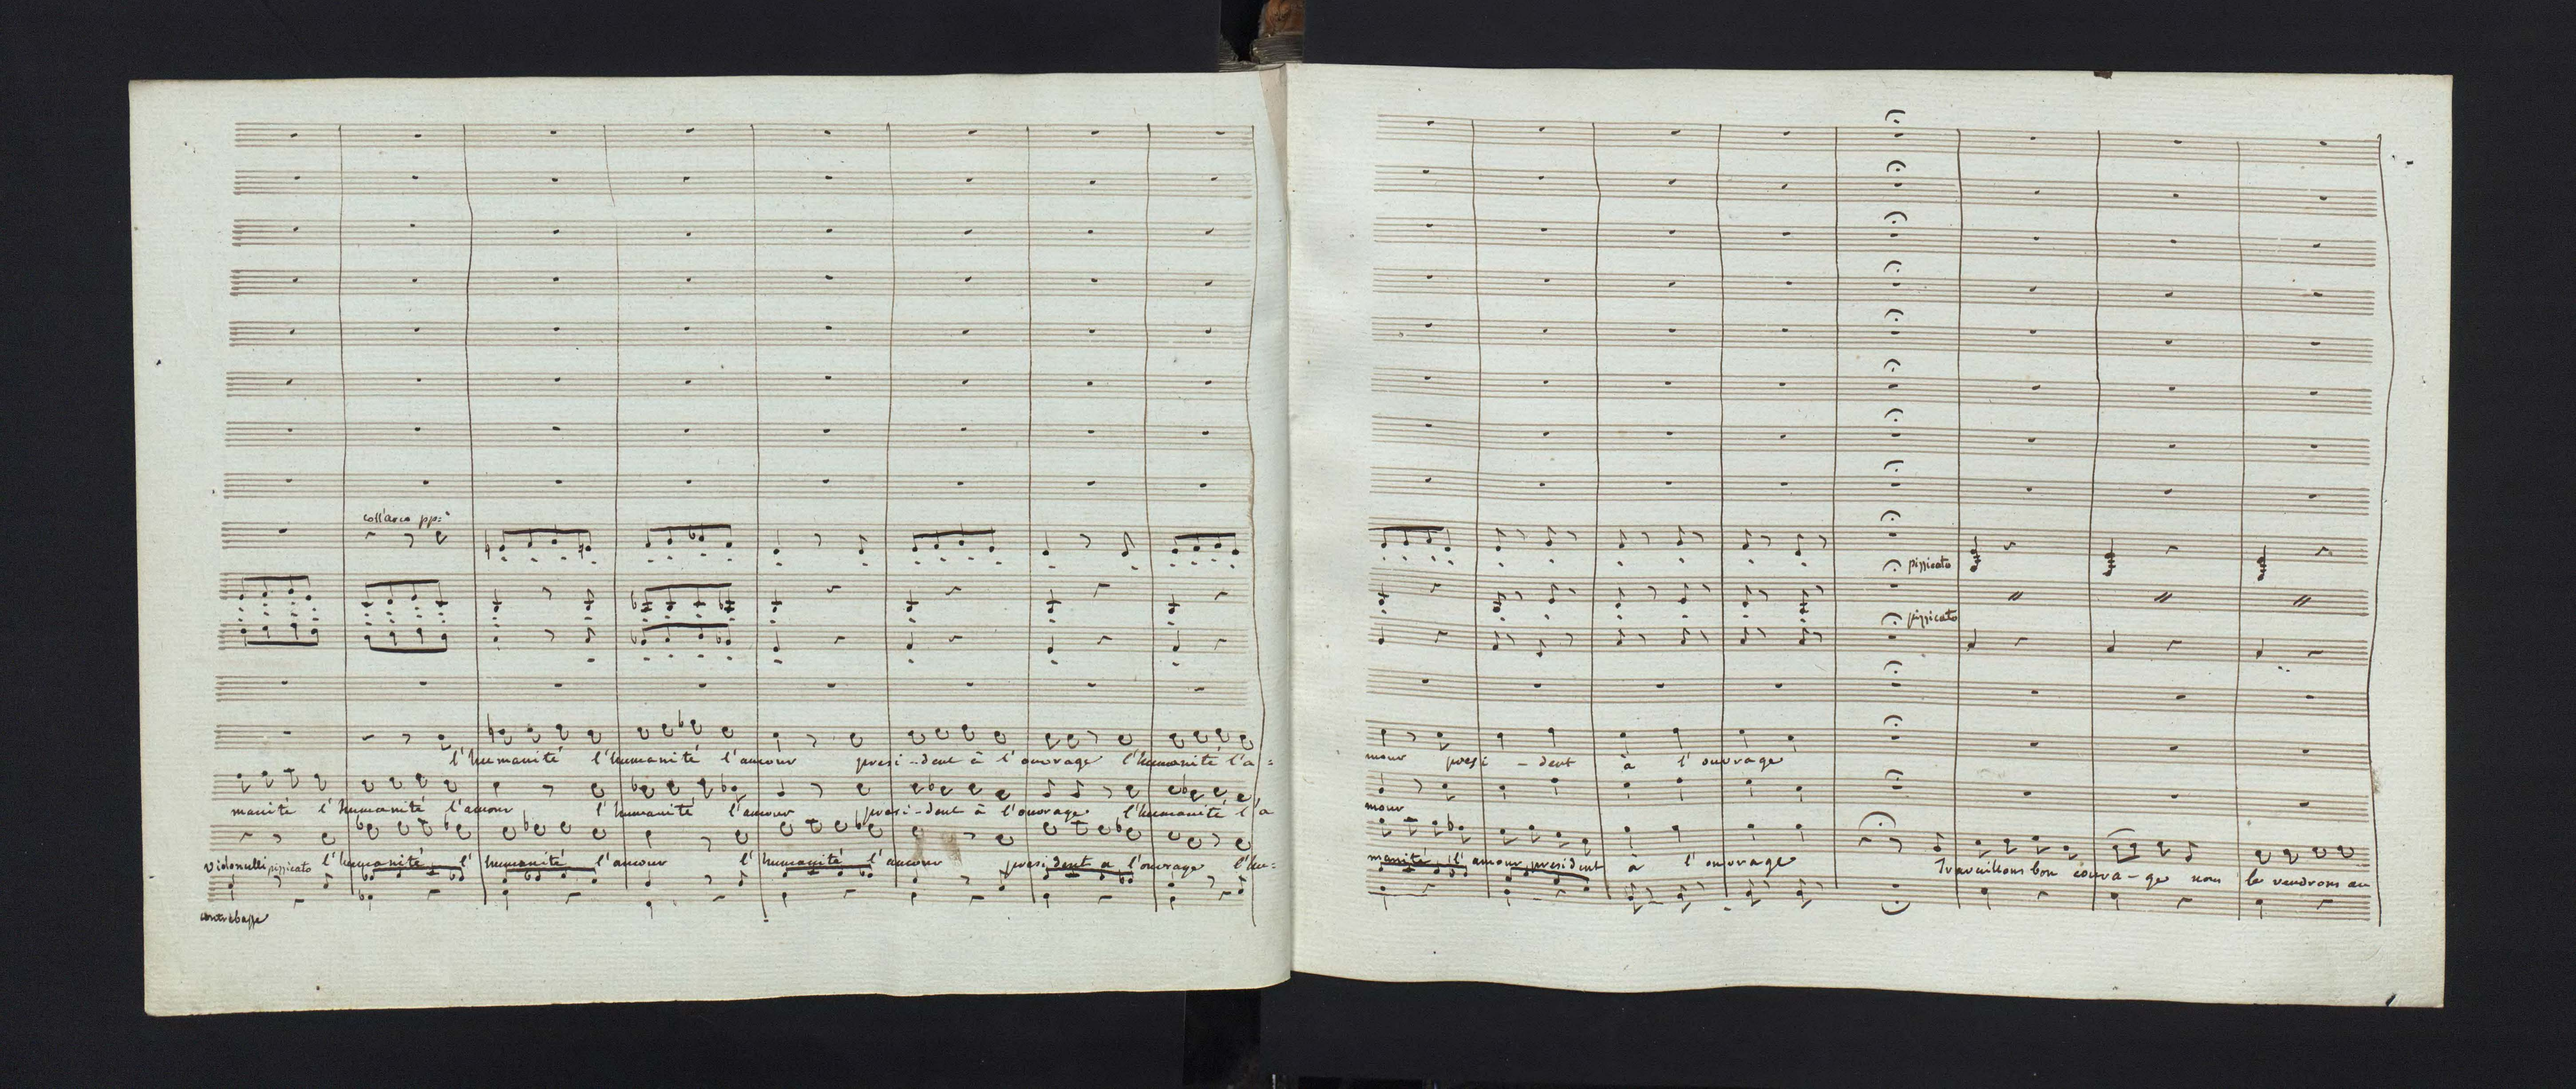 coll'arco pp:
l'humanité l'humanité l'amour presi--dent à l'ouvrage l'humanité l'a=
manité l'humanité l'amour l'humanité l'amour presi--dent à l'ouvrage l'humanité l'a
violonulli pizzicato l'humanité l' humanité l'amour l' humanité l'amour president a l'ouvrage l'hu=
contrebasse
pizzicato
pizzicato
mour presi - dent à l'ouvrage
mour
manité l'amour president à l'ouvrage Travaillons bon coura-ge nous le vendrons au